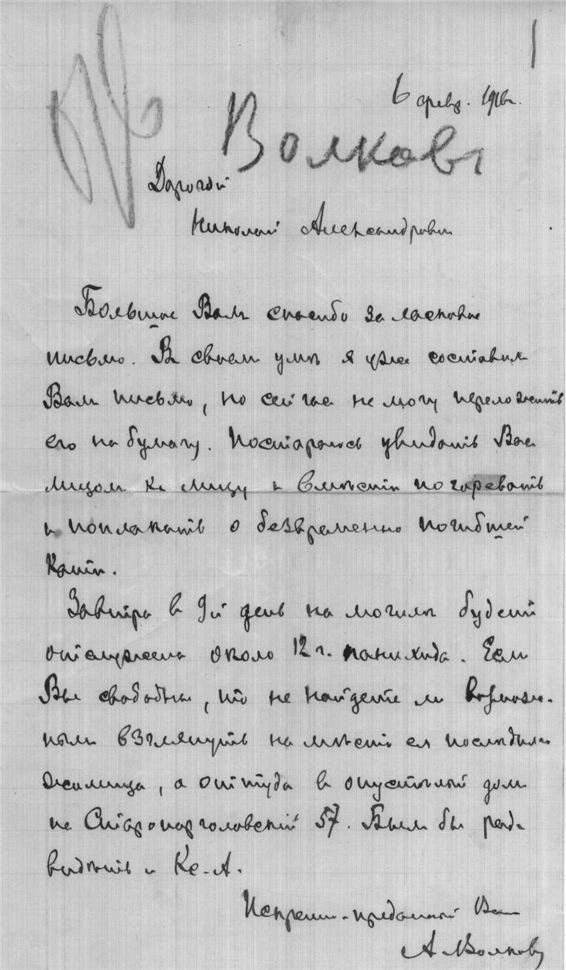 1
6 февр. 1916 г.
Волковъ
Дорогой
Николай Александрович
Большое Вам спасибо за ласковое
письмо. В своем уме я уже составил
Вам письмо, но сейчас не могу переложить
его на бумагу. Постараюсь увидать Вас
лицом к лицу и вместе погоревать
и поплакать о безвременно погибшей
Кати.
Завтра в 9й день на могиле будет
отслужена около 12 г. панихида. Если
Вы свободны, то не найдете ли возмож-
ным взглянуть на место ея последняго
жилища, а оттуда в опустелый дом
на Старопарголовский 57. Был бы рад
видеть и Ке. А.
Искренне-преданный Вам
А Волковъ